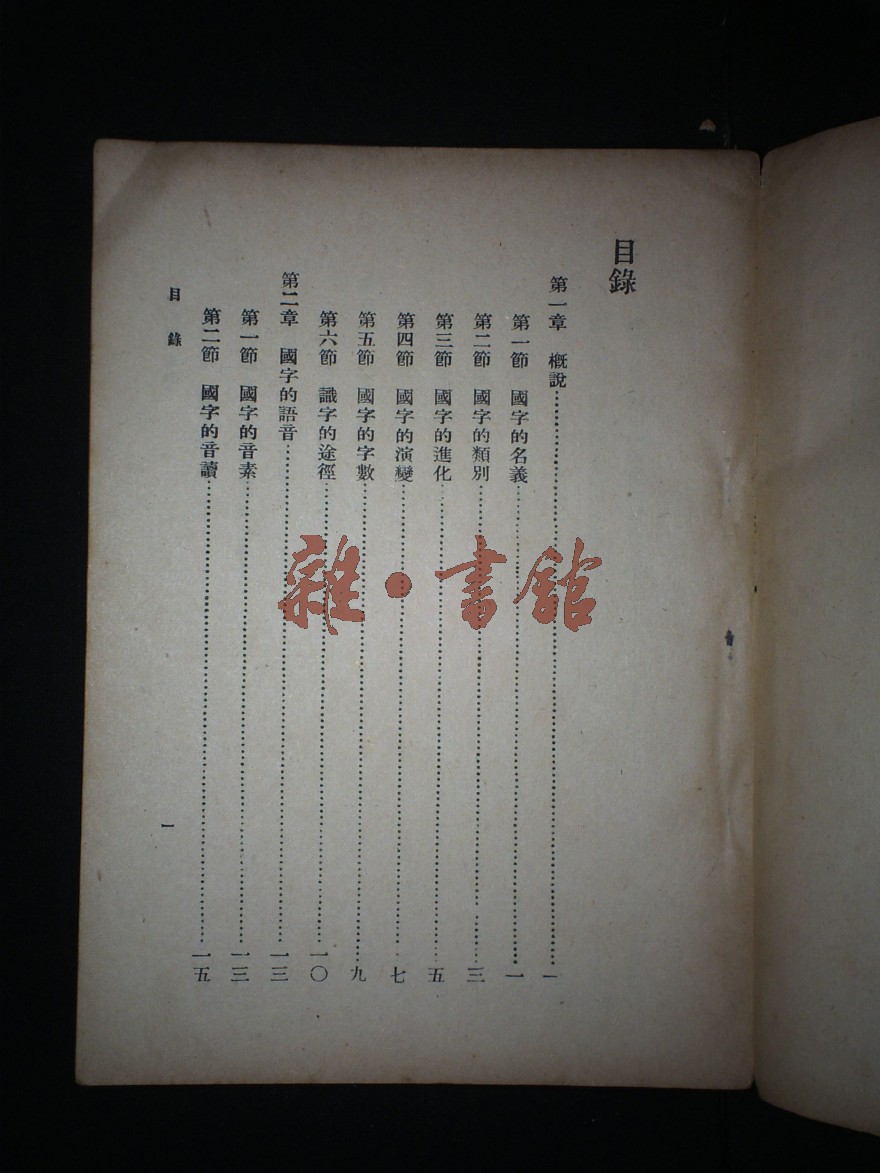 目錄
第一章　概說……一
第一節　國字的名義……一
第二節　國字的類別……三
第三節　國字的進化……五
第四節　國字的演變……七
第五節　國字的字數……九
第六節　識字的途徑……一〇
第二章　國字的語音……一三
第一節　國字的音素……一三
第二節　國字的音讀……一五
目錄
一
雜・書館